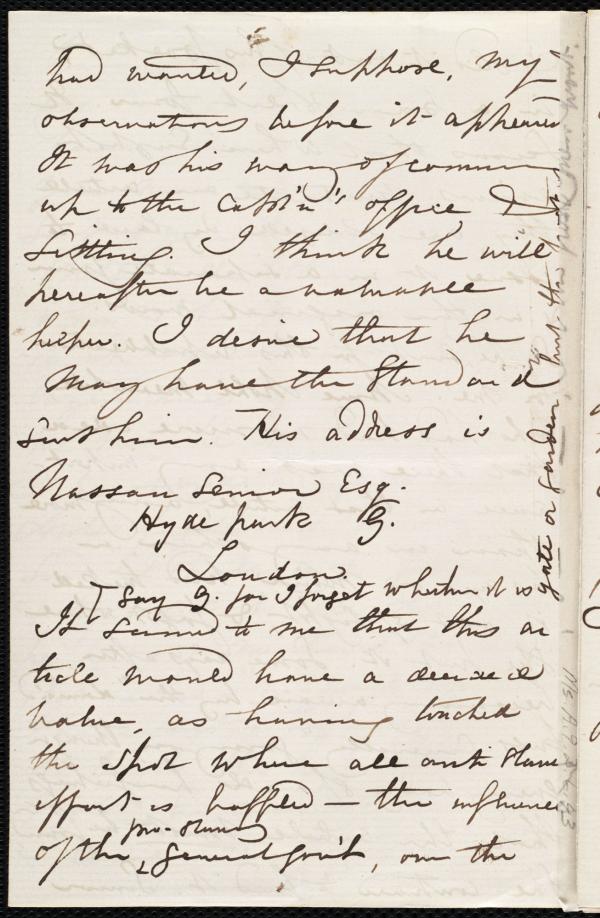 had wanted, I suppose, my
observations before it appeared
It was his way of coming
up to the Capt'n's office &
Settling. I think he will
hereafter be a valuable
helper. I desire that he
may have the Standard
sent him. His address is
Nassau Senior Esq.
Hyde park G.
London.
I say G. for I forget whether it is
gate or garden, but the post
It seemed to me that this ar
ticle would have a decided
value, as having touched
the spot where all anti slave
effort is baffled — the influence
pro-slavery
of the General gov't, over the